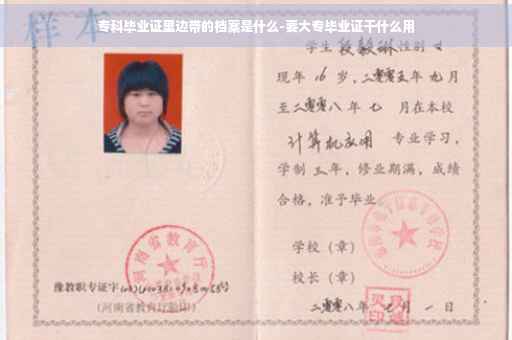 样本
专科毕业证里边带的档案是什么-要大专毕业证干什么用
学生段毅琳性别女
现年16岁，二零零五年九月
至二零零八年七月在本校
计算机应用 专业学习，
学制三年，修业期满，成绩
合格，准予毕业
学校（章）
校长（章）
二零零八年七月一日
河南省教育厅
豫教职专证字
（河南省教育厅验印）